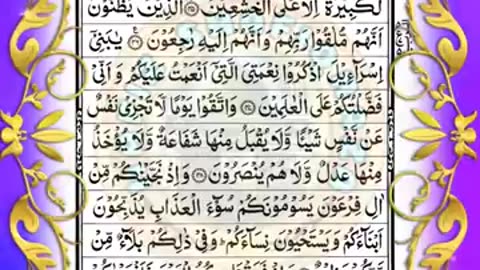 لَكَبِيْرَةٌ اِلَّا عَلَى الْخٰشِعِيْنَ ﴿۴۵﴾ الَّذِيْنَ يَظُنُّوْنَ
اَنَّهُمْ مُّلٰقُوْا رَبِّهِمْ وَاَنَّهُمْ اِلَيْهِ رٰجِعُوْنَ ﴿۴۶﴾ يٰبَنِيْۤ
اِسْرَآءِيْلَ اذْكُرُوْا نِعْمَتِيَ الَّتِيْۤ اَنْعَمْتُ عَلَيْكُمْ وَاَنِّيْ
فَضَّلْتُكُمْ عَلَى الْعٰلَمِيْنَ ﴿۴۷﴾ وَاتَّقُوْا يَوْمًا لَّا تَجْزِيْ نَفْسٌ
عَنْ نَّفْسٍ شَيْـًٔا وَّلَا يُقْبَلُ مِنْهَا شَفَاعَةٌ وَّلَا يُؤْخَذُ
مِنْهَا عَدْلٌ وَّلَا هُمْ يُنْصَرُوْنَ ﴿۴۸﴾ وَاِذْ نَجَّيْنٰكُمْ مِّنْ
اٰلِ فِرْعَوْنَ يَسُوْمُوْنَكُمْ سُوْٓءَ الْعَذَابِ يُذَبِّحُوْنَ
اَبْنَآءَكُمْ وَيَسْتَحْيُوْنَ نِسَآءَكُمْ ؕ وَفِيْ ذٰلِكُمْ بَلَآءٌ مِّنْ